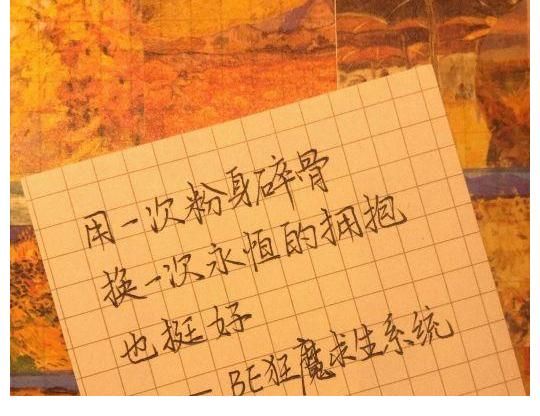 用一次粉身碎骨
换一次永恒的拥抱
也挺好
— BE狂魔求生系统